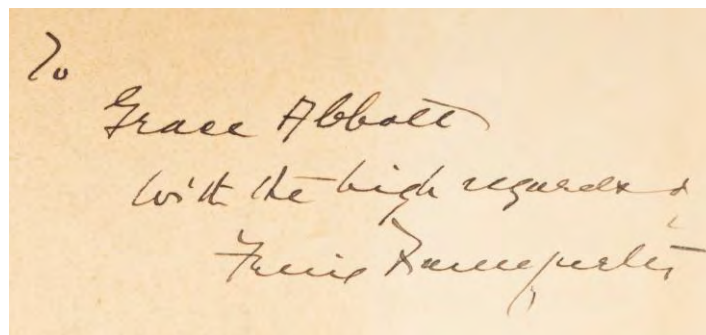 To
Grace Abbott
with the high regards of
Felix Frankfurter